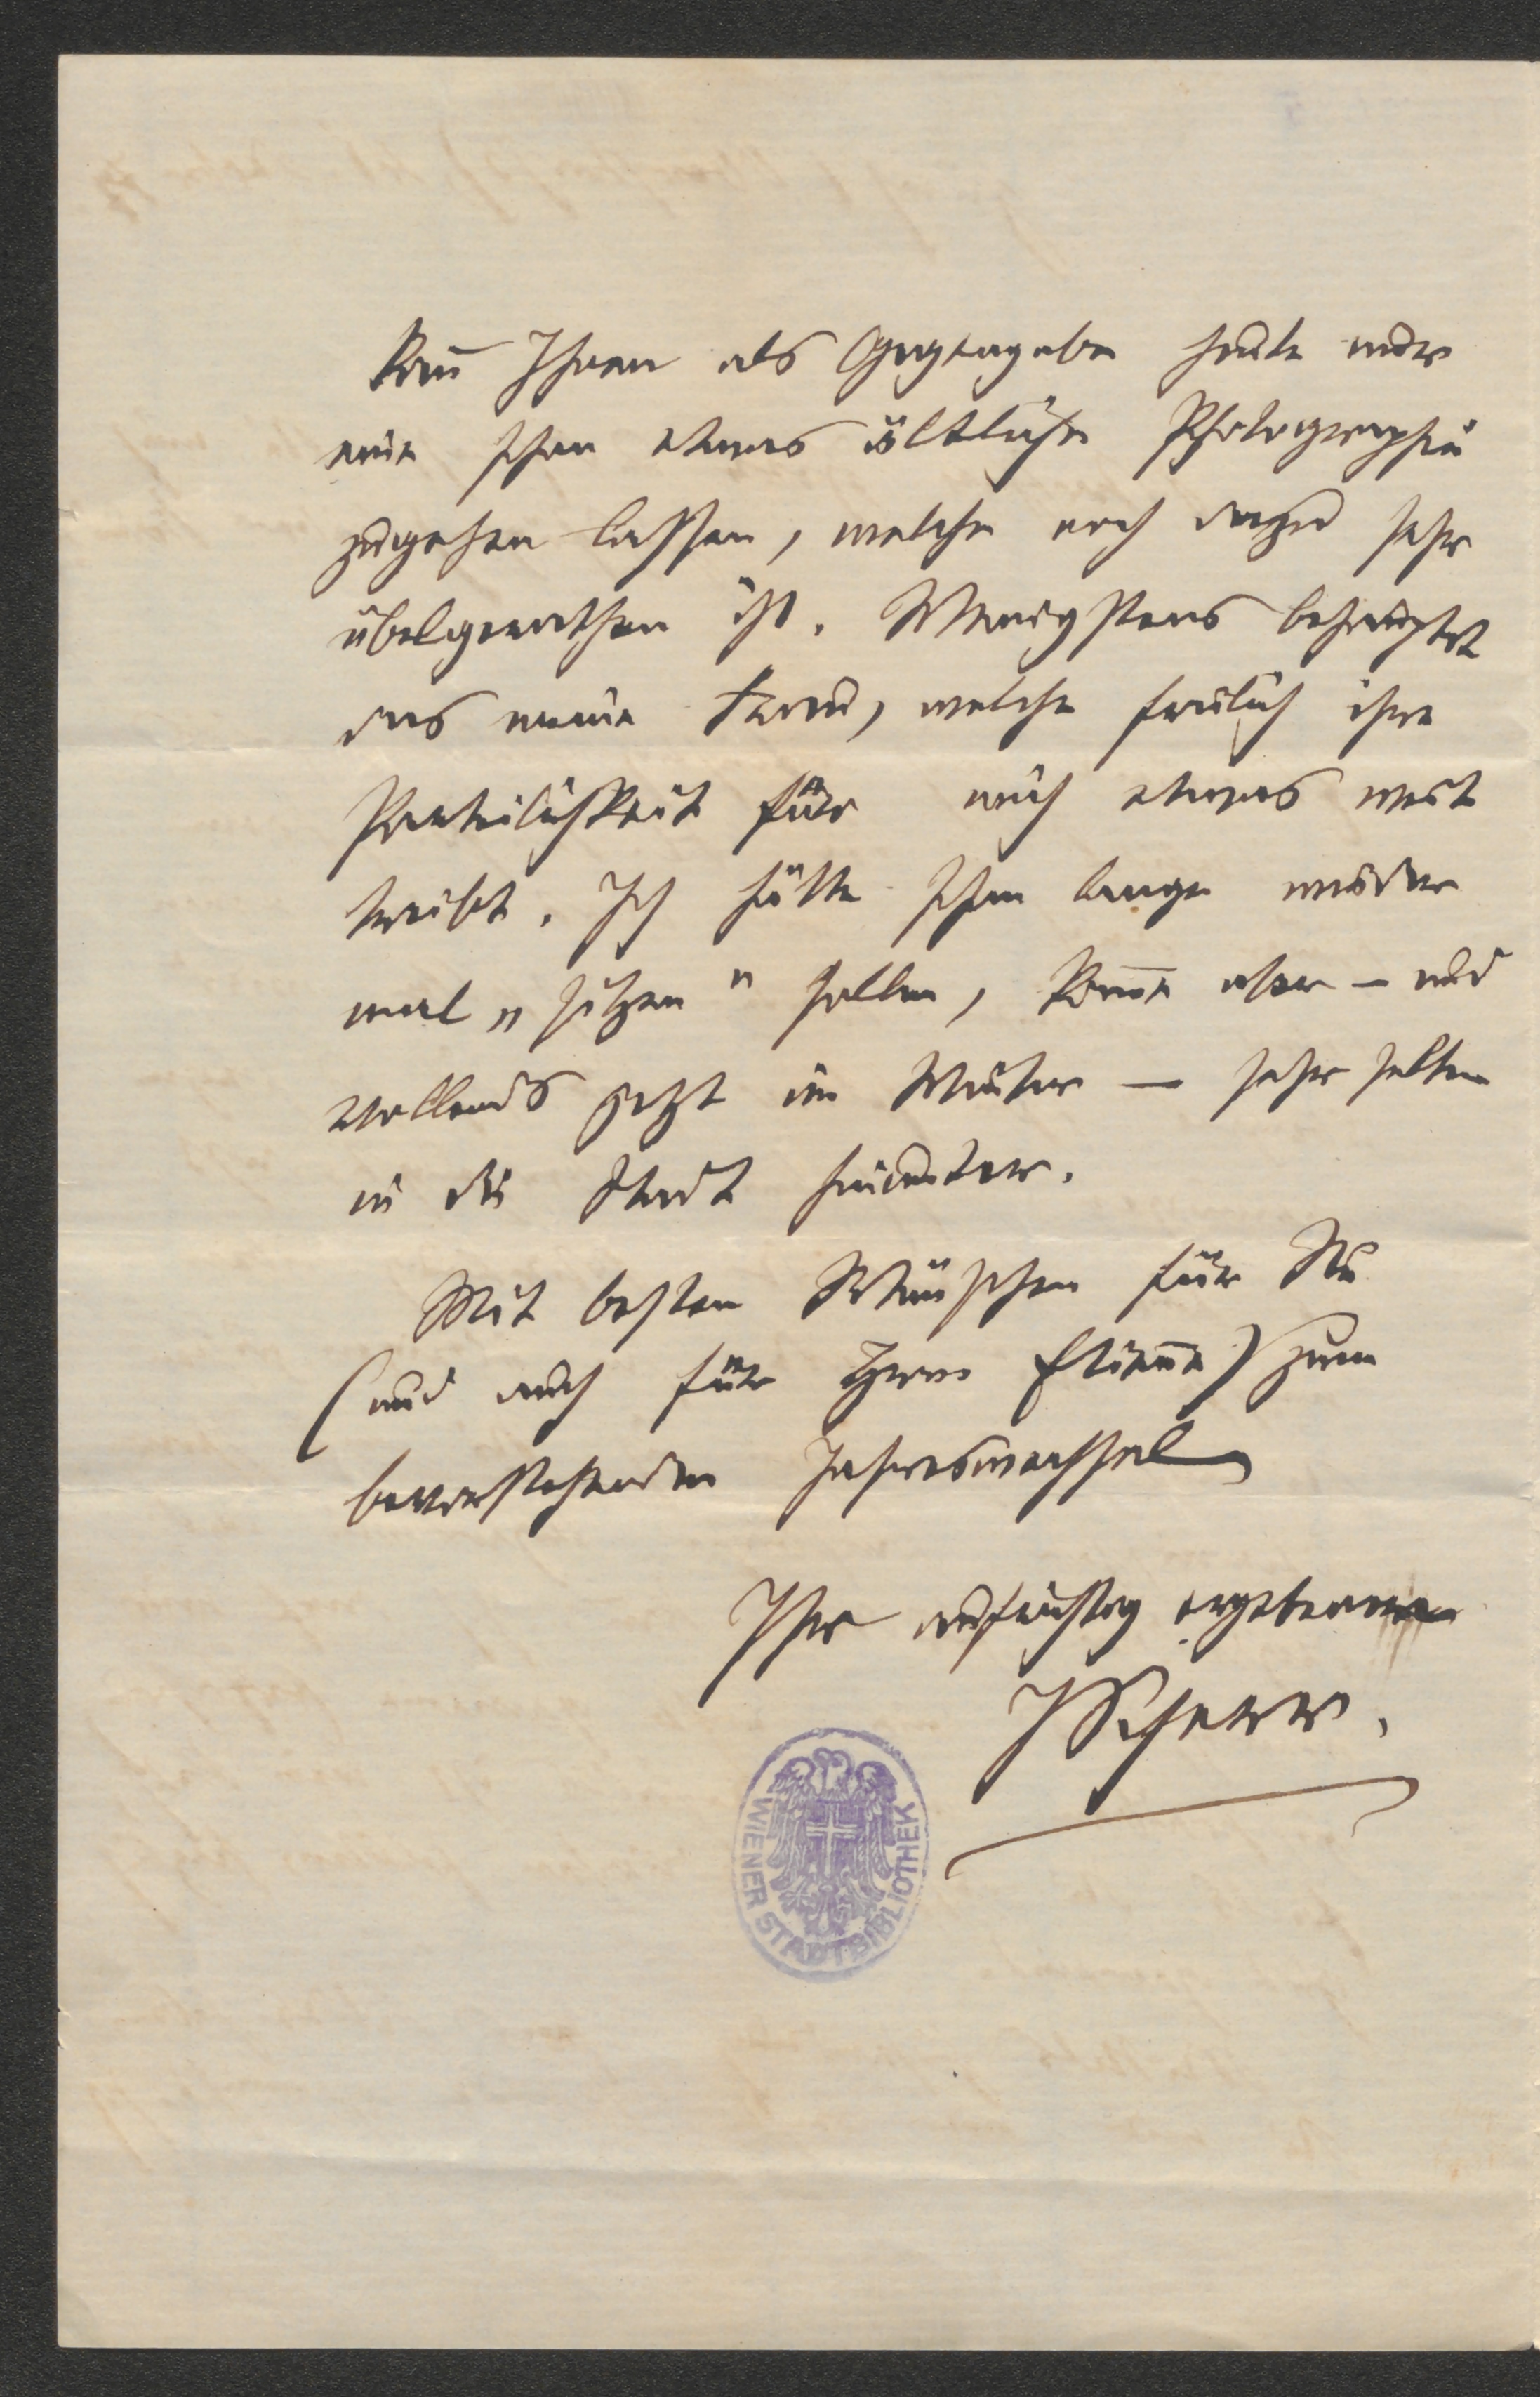 kann̄ Ihnen als Gegengabe heute nur
eine schon etwas ältliche Photographie
zugehen lassen, welche noch dazu sehr
übelgerathen ist. Wenigstens behauptet
das meine Frau, welche freilich ihre
Parteilichkeit für mich etwas weit
treibt. Ich hätte schon lange wieder
mal „sitzen“ sollen, kom̄e aber – und
vollends jetzt im Winter – sehr selten
in die Stadt hinunter.
Mit besten Wünschen für Sie
(und auch für Herrn Etien̄e) zum
bevorstehenden Jahreswechsel
Ihr aufrichtig ergebener
JScherr.
WIENER STADTBIBLIOTHEK